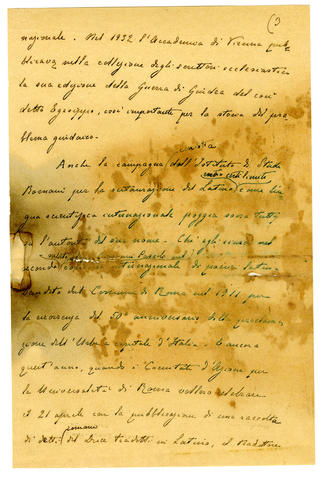 (3
nazionale. Nel 1932 l'Accademia di Vienna pub
blicava nella collezione degli scrittori ecclesiastici
la sua edizione della Guerra di Giudea del così
detto Egesippo, così importante per la storia del pro
blema giudaico.
Anche la campagna dell'Istituto di Studi
Romani per la restaurazione del Latino come lin
gua scientifica internazionale poggia sopra tutto
su l'autorità del suo nome. Che egli
internazionale di poesia latina
bandito dal Comune di Roma nel 1911 per
la ricorrenza del 50° anniversario della proclama
zione dell'Urbe a capitale d'Italia. E ancora
quest'anno, quando i Comitati d'Azione per
la Universalità di Roma vollero celebrare
il 21 aprile con la pubblicazione di una raccolta
romano
di detti del Duce tradotti in Latino, il traduttore